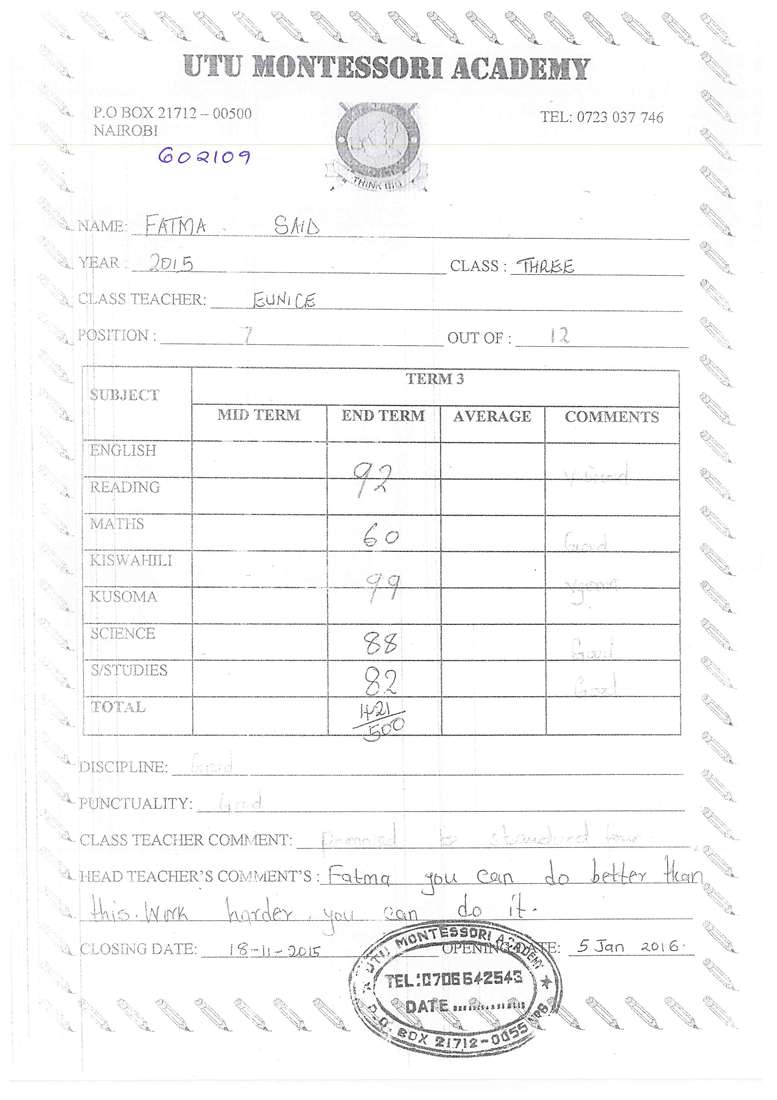 UTU MONTESSORI ACADEMY
P.O BOX 21712 – 00500
NAIROBI
TEL: 0723 037 746
602109
THINK BIG
NAME: FATMA SAID
YEAR : 2015 CLASS : THREE
CLASS TEACHER: EUNICE
POSITION : 7 OUT OF : 12
SUBJECT TERM 3
MID TERM END TERM AVERAGE COMMENTS
ENGLISH
READING 92 V.Good
MATHS 60 Good
KISWAHILI
KUSOMA 99 Vgood
SCIENCE 88 Good
S/STUDIES 82 Good
TOTAL 421/500
DISCIPLINE: Good
PUNCTUALITY: Good
CLASS TEACHER COMMENT: to four
HEAD TEACHER'S COMMENT'S : Fatma you can do better than
this. Work harder, you can do it.
CLOSING DATE: 18-11-2015 OPENING DATE: 5 Jan 2016.
UTU MONTESSORI ACADEMY
TEL:0706642543
DATE
P.O. BOX 21712-0055 NRB